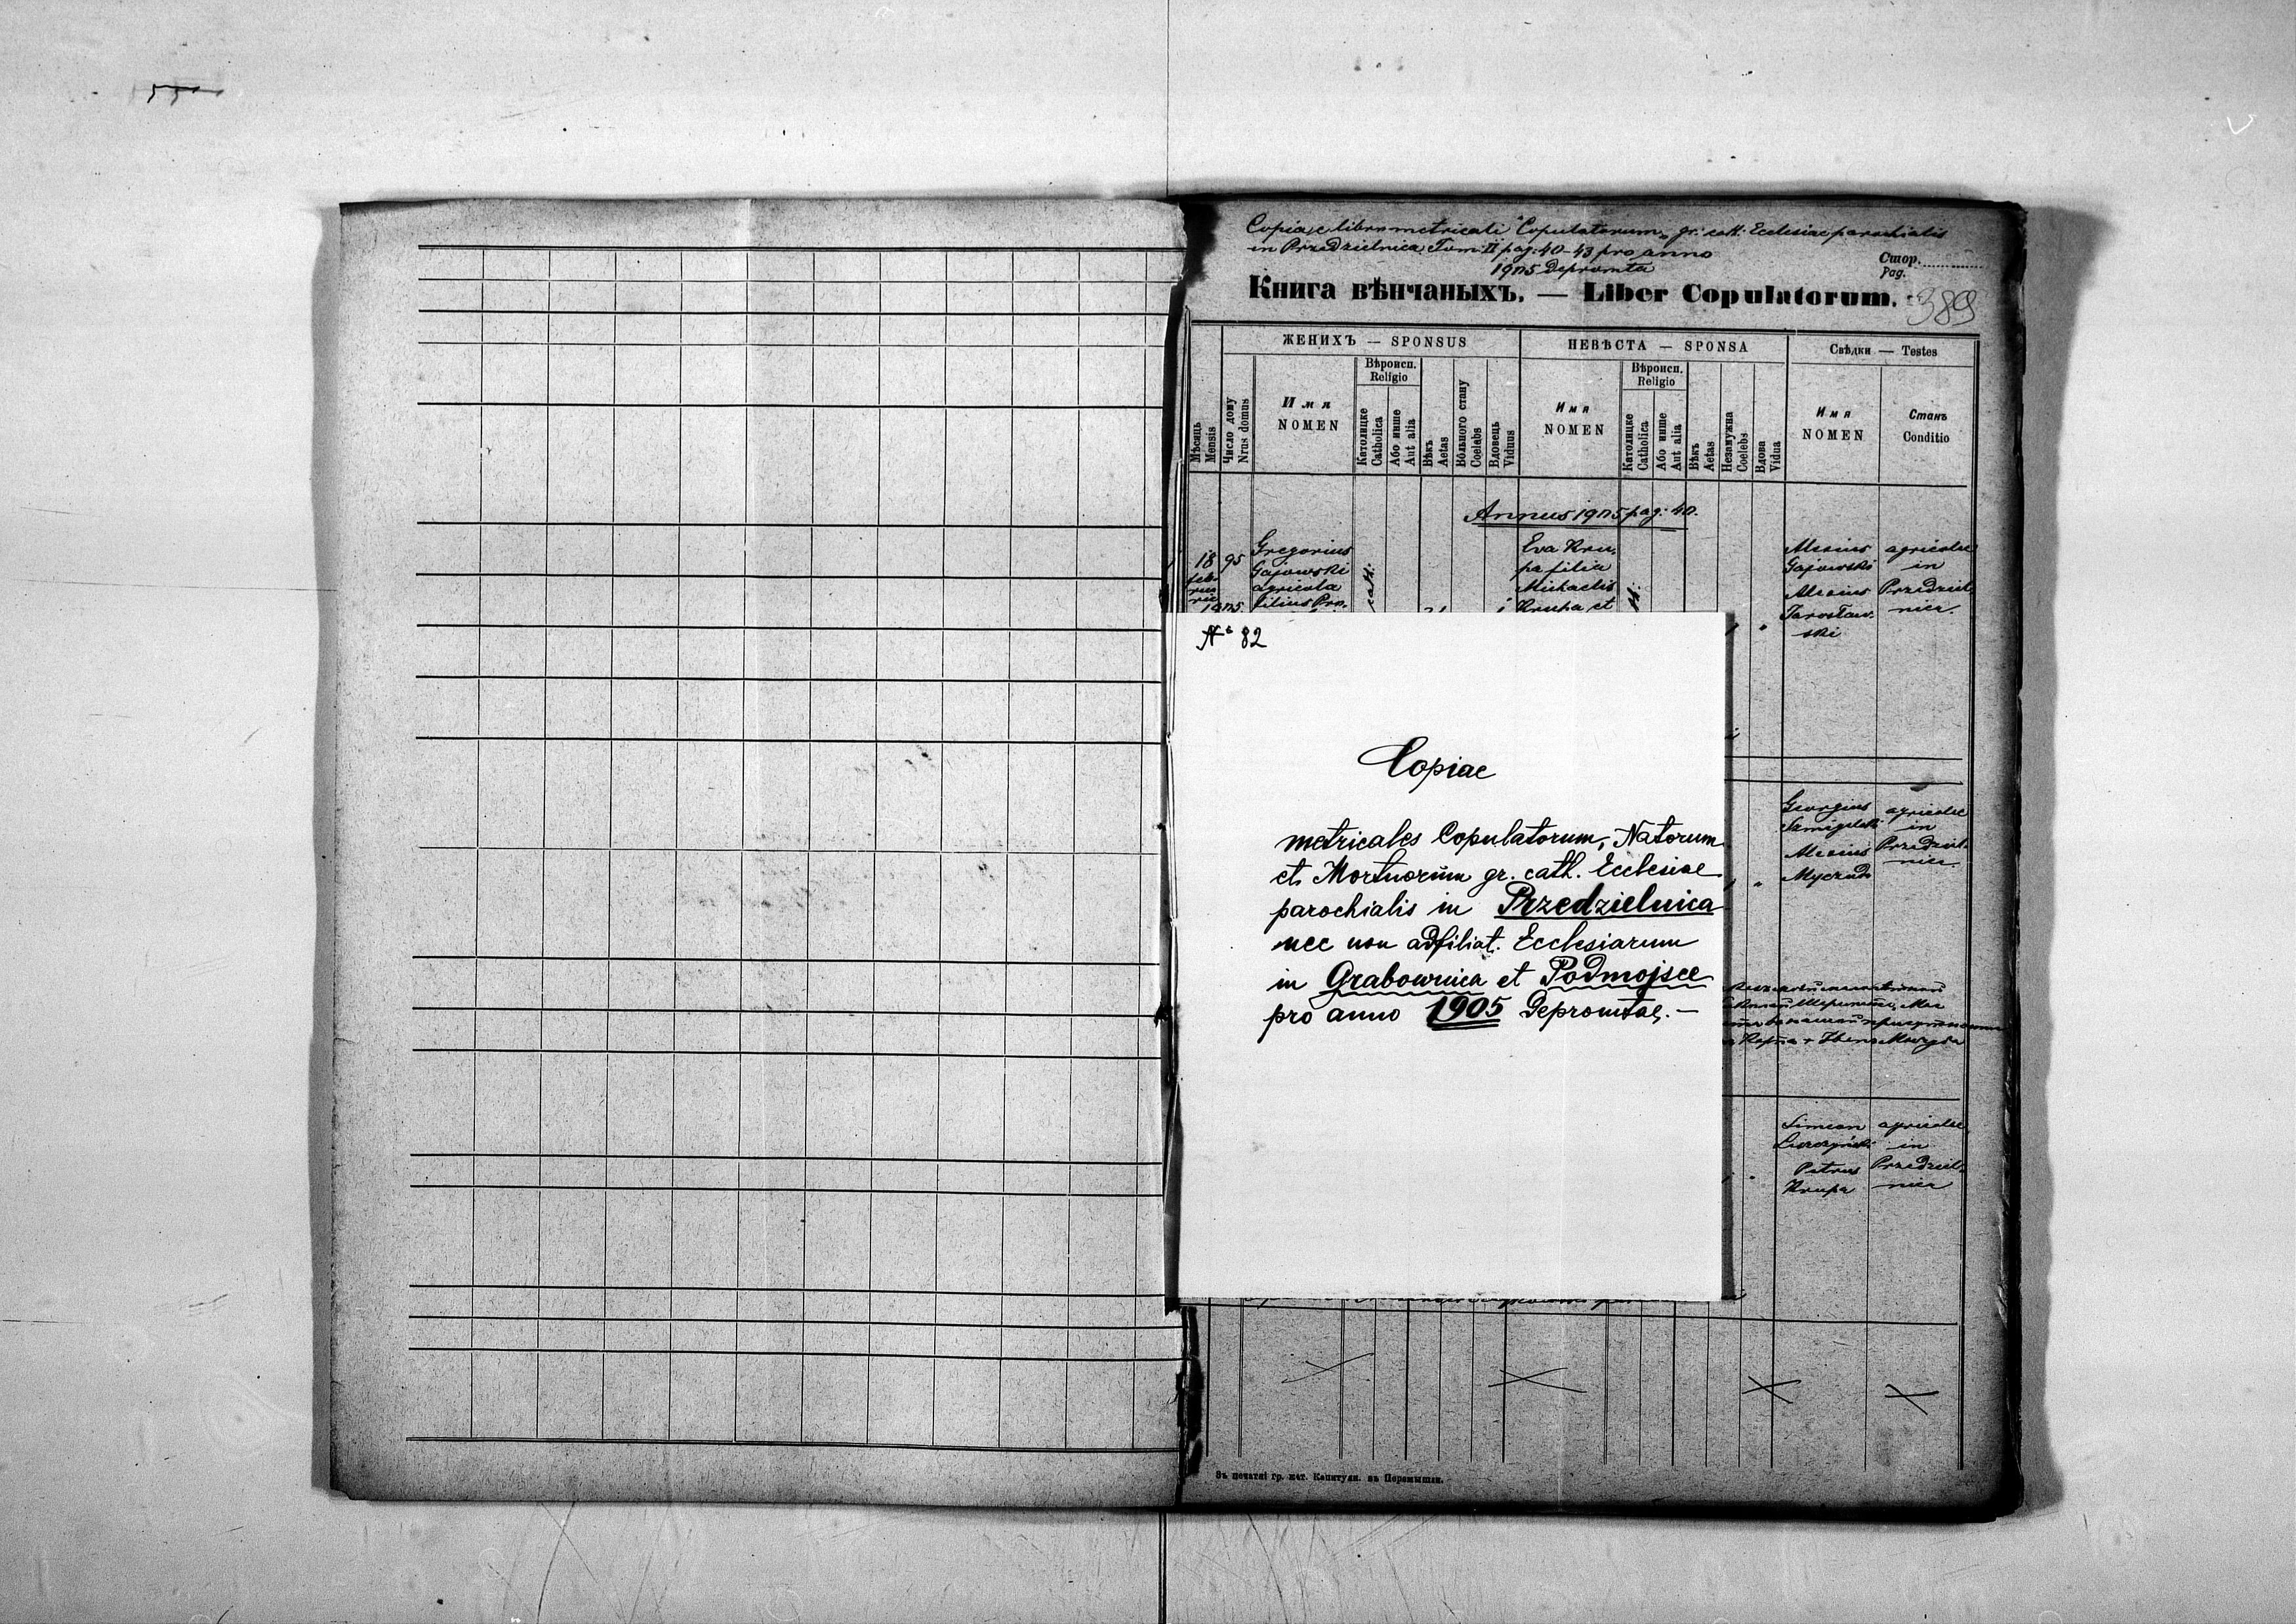 Copia e libro metricali "Copulatorum" gr: cath: Ecclesiae parochialis
in Przedzielnica Tom: II pag: 40-43 pro anno
1905 Depromta
Стор.
Pag.
Книга вѣнчаныхъ. — Liber Copulatorum.
389
ЖЕНИХЪ — SPONSUS
НЕВѢСТА — SPONSA
Свѣдки — Testes
Мѣсяць
Mensis
Число дому
Nrus domus
Имя
NOMEN
Вѣроисп.
Religio
Католицке
Catholica
Або инше
Aut alia
Вѣкъ
Aetas
Вôльного стану
Coelebs
Вдовець
Viduus
Имя
NOMEN
Вѣроисп.
Religio
Католицке
Catholica
Або инше
Aut alia
Вѣкъ
Aetas
Незамужна
Coelebs
Вдова
Vidua
Имя
NOMEN
Станъ
Conditio
Annus 1905 pag: 40.
18
febr
1905
95
Gregorius
Gajowski
agricola
filius Pro-
cath:
Eva Kru-
pa filia
Michaelis
Krupa et
Alexius
Gajowski
Alexius
Jarosław-
ski
agricolae
in
Przedziel-
nica.
№ 82
Copiae
metricales Copulatorum, Natorum
et Mortuorum gr. cath. Ecclesiae
parochialis in Przedzielnica
nec non adfiliat. Ecclesiarum
in Grabownica et Podmojsce
pro anno 1905 Depromtae. —
Georgius
Alexius
agricolae
in
Przedziel-
nica.
Simeon
Petrus
Krupa
agricolae
in
Przedziel-
nica
Въ печатнѣ гр. кат. Капитулы. въ Перемышли.